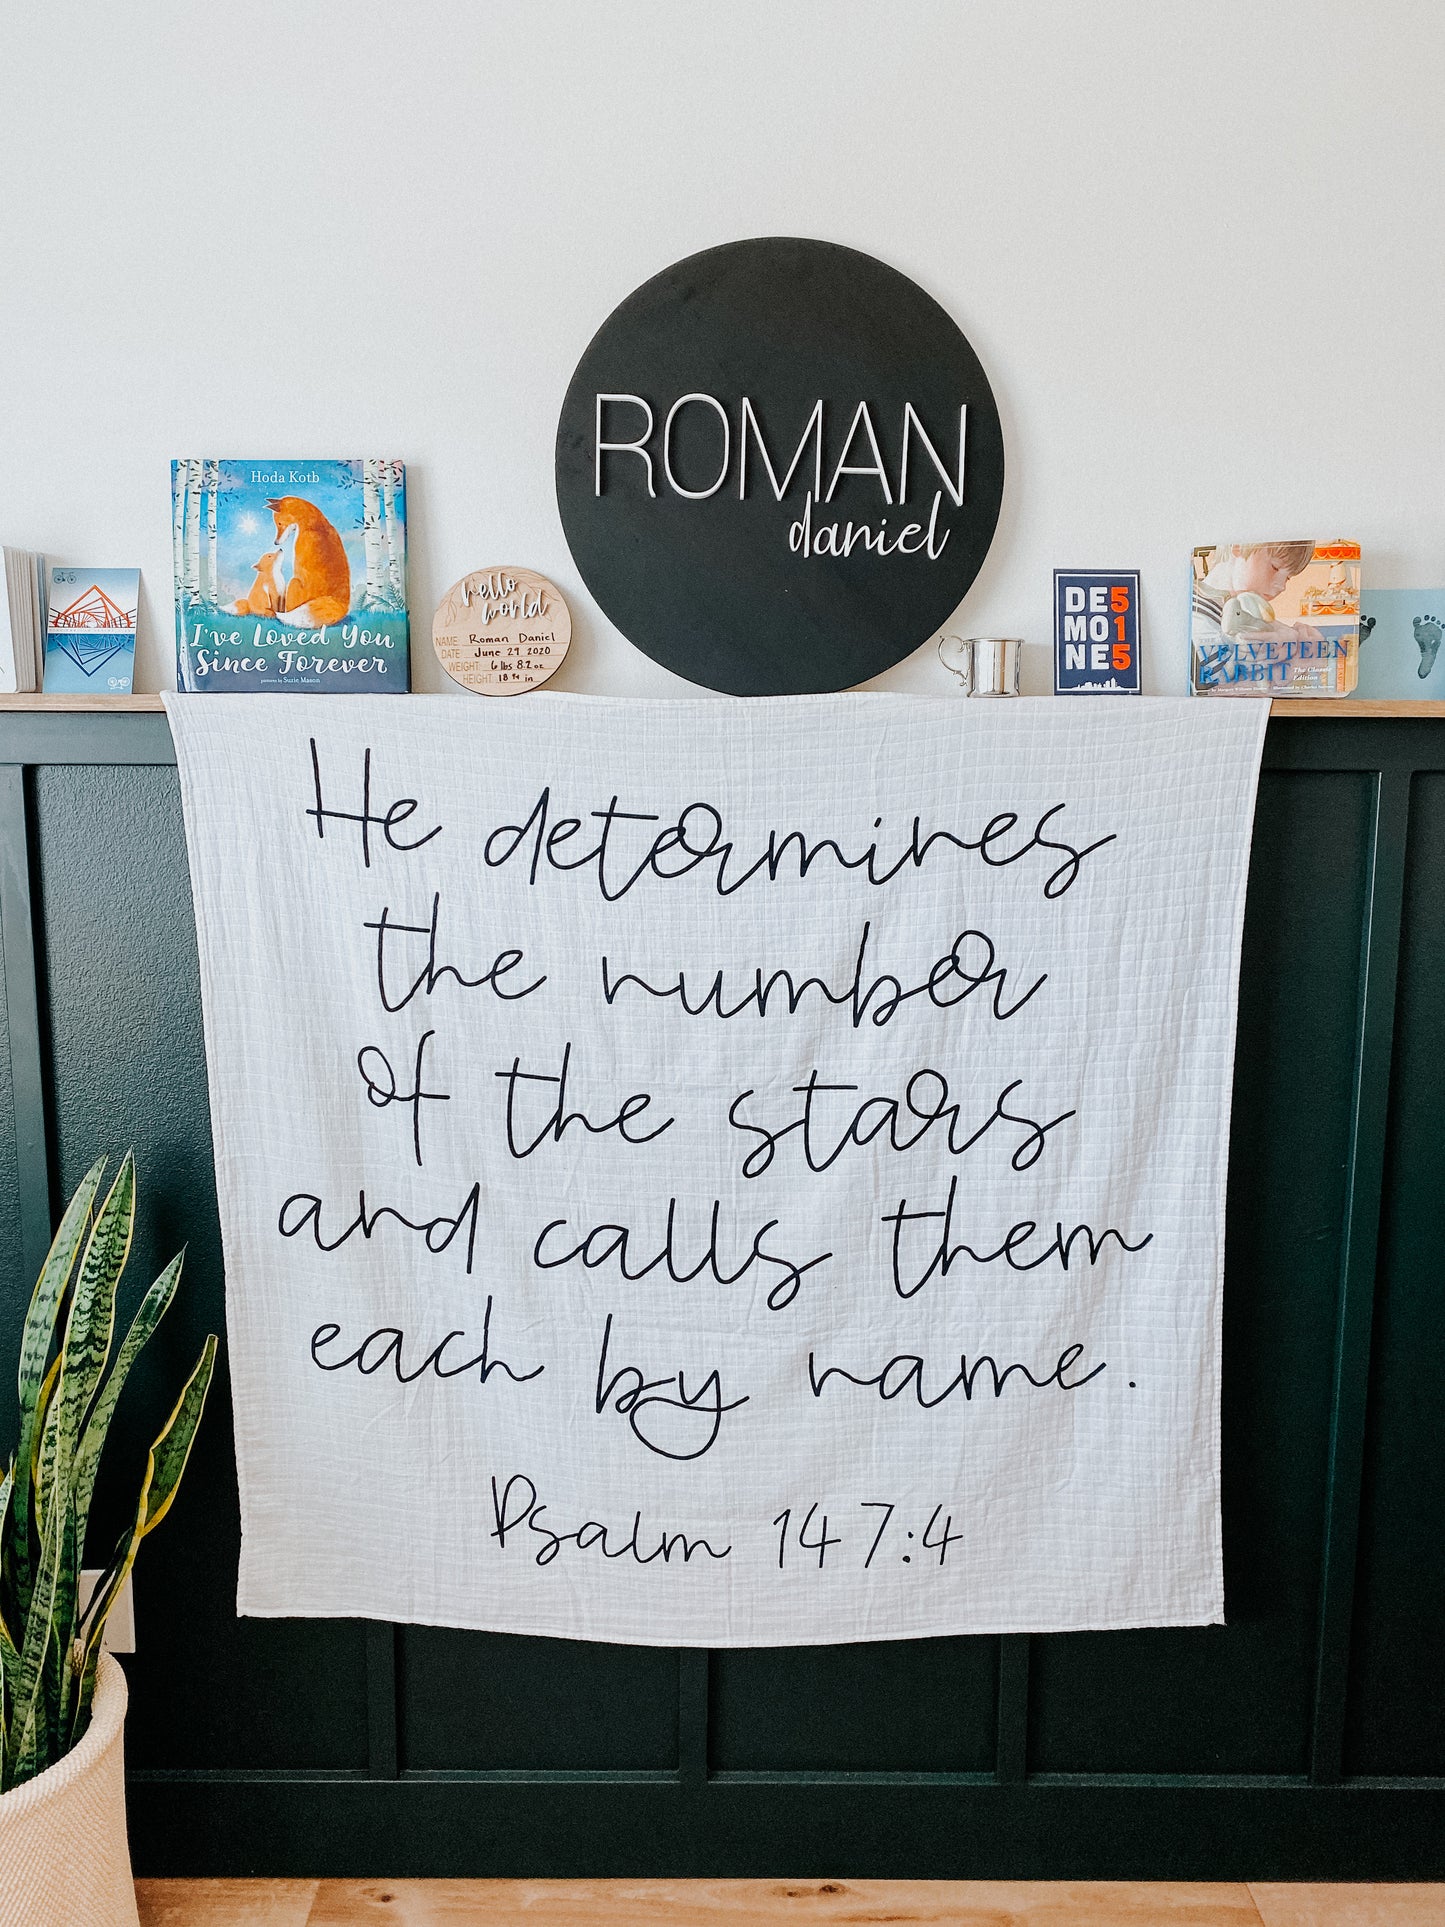 ROMAN
daniel
Hoda Kotb
I've Loved You
Since Forever
pictures by Suzie Mason
hello
world
NAME: Roman Daniel
DATE: June 29 2020
WEIGHT: 6 lbs 8.2 oz
HEIGHT: 18 3/4 in
DE5
MO1
NE5
VELVETEEN
RABBIT
The Classic
Edition
He determines
the number
of the stars
and calls them
each by name.
Psalm 147:4